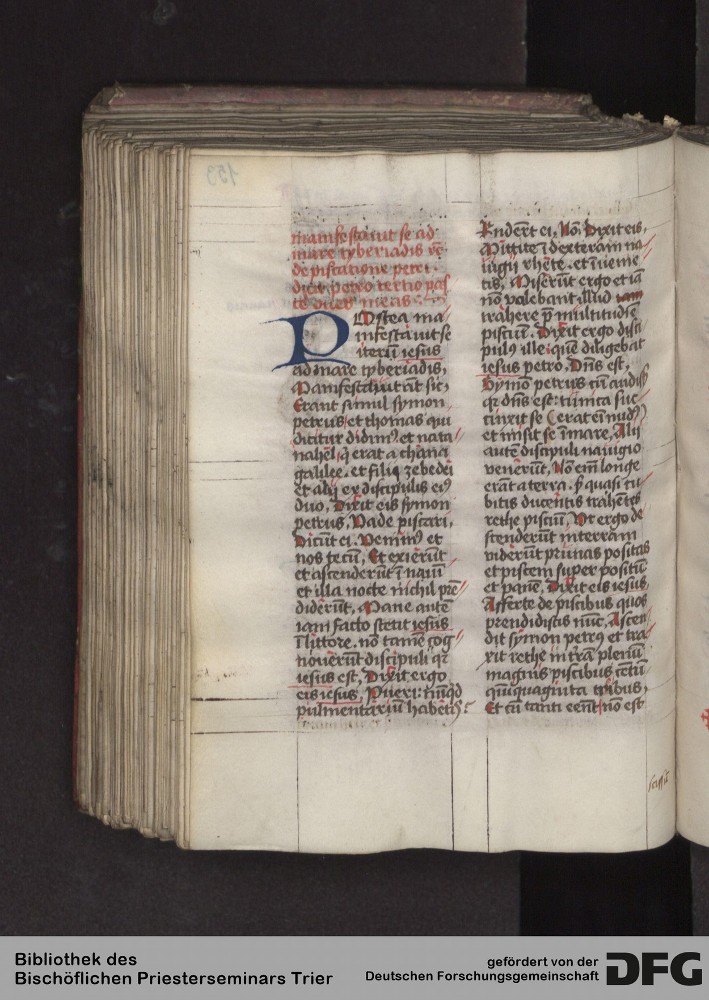 manifestauit se ad
mare tyberiadis
de piscatione petri.
dicit petro tertio pas
ce oues meas
POstea ma
nifestauit se
iterū iesus
ad mare tyberiadis,
Manifestauit aūt sic,
Erant simul symon
petrus et thomas qui
dicitur didimꝰ et nata
nahel, q̇ erat a chana
galilee. et filij zebedei
et alij ex discipulis eiꝰ
duo, Dixit eis symon
petrus, Vado piscari,
Dicūt ei. Venimꝰ et
nos tecū, Et exierūt
et ascenderūt ī nauī
et illa nocte nichil prē
diderūt, Mane autē
iam facto stetit iesus
ī littore. nō tamē cog
nouerūt discipuli qꝛ
iesus est, Dixit ergo
eis iesus, Pueri: nūqd
pulmentariū habetis?
Rnderūt ei, Nō, Dixit eis,
Mittite ī dexteram na
uigij rhete. et īuenie
tis, Miserūt ergo et iā
nō valebant illud
trahere p̄ multitudīe
pisciū. Dixit ergo disci
pulꝰ ille: quē diligebat
iesus petro, Dn̄s est,
Symon petrus cū audisꝫ
qꝛ dn̄s est: tunica suc
cinxit se (erat eī nudꝰ)
et misit se ī mare, Alij
autē discipuli nauigio
venerūt, Nō em̄ longe
erāt a terra. sꝫ quasi cu
bitis ducentis trahētes
rethe pisciū, Vt ergo de
scenderūt in terram
viderūt prunas positas
et piscem super positū
et panē, Dixit eis iesus,
Afferte de piscibus quos
prendidistis nūc, Ascen
dit symon petrꝰ et tra
xit rethe in trā plenū
magnis piscibus centū
quinquaginta tribus,
Et cū tanti eēnt: nō est
Bibliothek des
Bischöflichen Priesterseminars Trier
gefördert von der
Deutschen Forschungsgemeinschaft
DFG